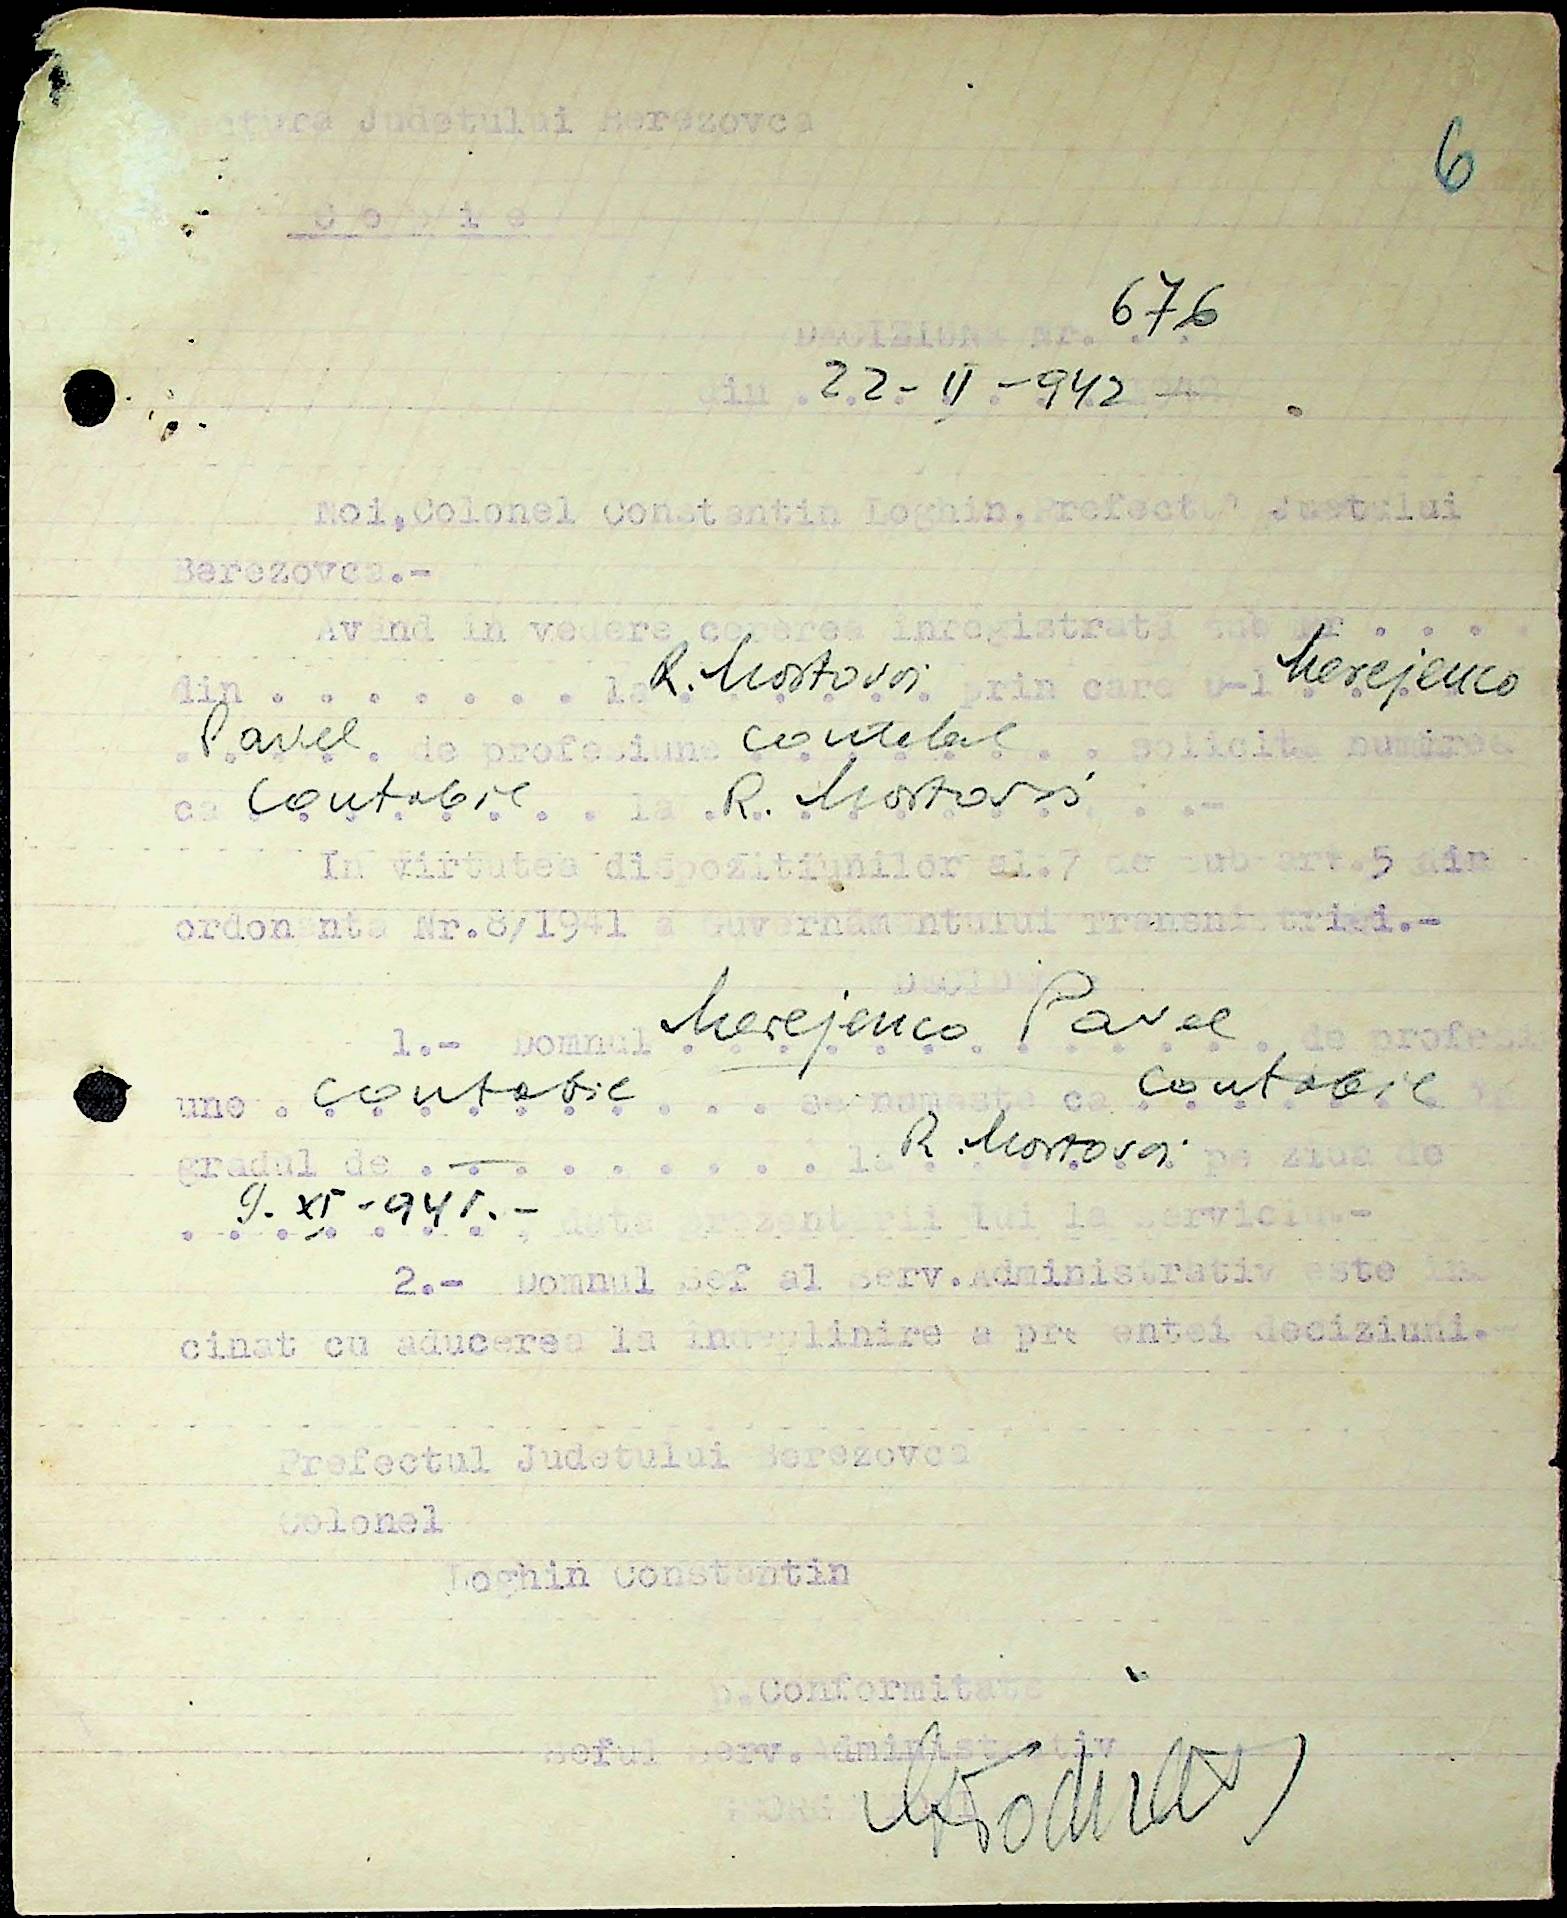 6
Judetului Berezovca
Copie
Deciziune Nr. 676
din 22-II-942
Noi, Colonel Constantin Loghin, Prefectul Judetului
Berezovca.-
Avand in vedere cererea inregistrata sub Nr . . . .
din . . . . . . . la R. Mostovoi prin care D-l Merejenco
Pavel de profesiune contabil solicita numirea
ca Contabil . . la R. Mostovoi . .-
In virtutea dispozitiunilor al.7 de sub art.5 din
ordonanta Nr.8/1941 a Guvernamantului Transnistriei.-
1.- Domnul Merejenco Pavel de profesi
une . contabil . . . se numeste ca contabil
gradul de . — . . . . . . . la R. Mostovoi pe ziua de
9. XI-941.- data prezentarii lui la serviciu.-
2.- Domnul Sef al Serv.Administrativ este in
cinat cu aducerea la indeplinire a prezentei deciziuni.-
Prefectul Judetului Berezovca
Colonel
Loghin Constantin
p.Conformitate
Seful Serv.Administrativ